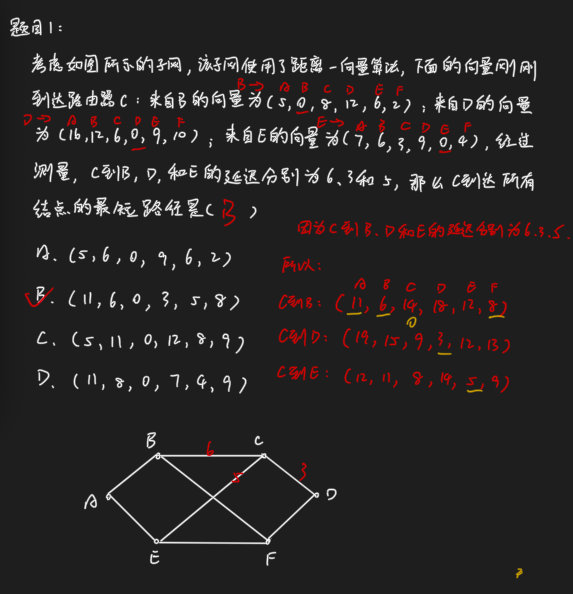 题目1:
考虑如图所示的子网,该子网使用了距离-向量算法,下面的向量刚刚
B→ A B C D E F
到达路由器C:来自B的向量为(5,0,8,12,6,2);来自D的向量
D→ A B C D E F E→ A B C D E F
为(16,12,6,0,9,10);来自E的向量为(7,6,3,9,0,4),经过
测量,C到B,D,和E的延迟分别为6、3和5,那么C到达所有
结点的最短路径是(B)
因为C到B、D和E的延迟分别为6.3.5.
A. (5,6,0,9,6,2)
所以:
A B C D E F
B. (11,6,0,3,5,8)
C到B:(11,6,14,18,12,8)
0
C. (5,11,0,12,8,9)
C到D:(19,15,9,3,12,13)
D. (11,8,0,7,4,9)
C到E:(12,11,8,14,5,9)
B 6 C
5 3
A D
E F